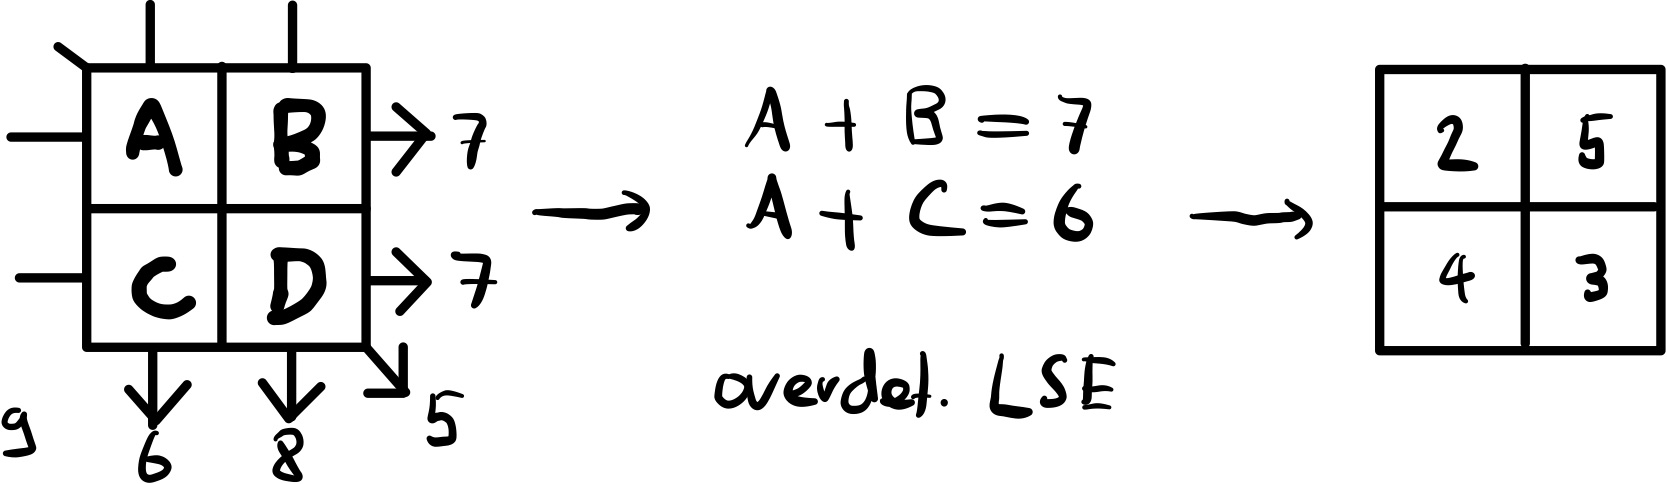 A B 7
C D 7
9 6 8 5
A + B = 7
A + C = 6
overdet. LSE
2 5
4 3